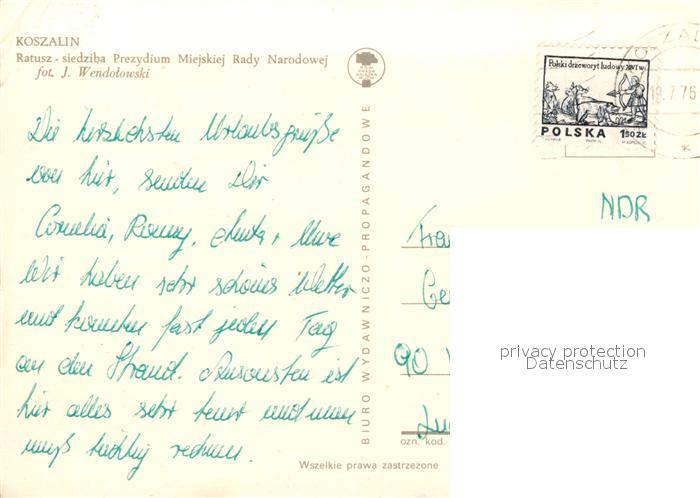 KOSZALIN
Ratusz - siedziba Prezydium Miejskiej Rady Narodowej
fot. J. Wendołowski
Die herzlichsten Urlaubsgrüße
von hier, senden Dir
Cornelia, Romy, + Uwe
Wir haben sehr schönes Wetter
und konnten fast jeden Tag
an den Strand. Ansonsten ist
hier alles sehr teuer und man
muß tüchtig rechnen.
BIURO WYDAWNICZO-PROPAGANDOWE
Polski drzeworyt ludowy XVI w.
POLSKA 1,50 ZŁ
19.7.76
NDR
90
privacy protection
Datenschutz
ozn. kod.
Wszelkie prawa zastrzeżone